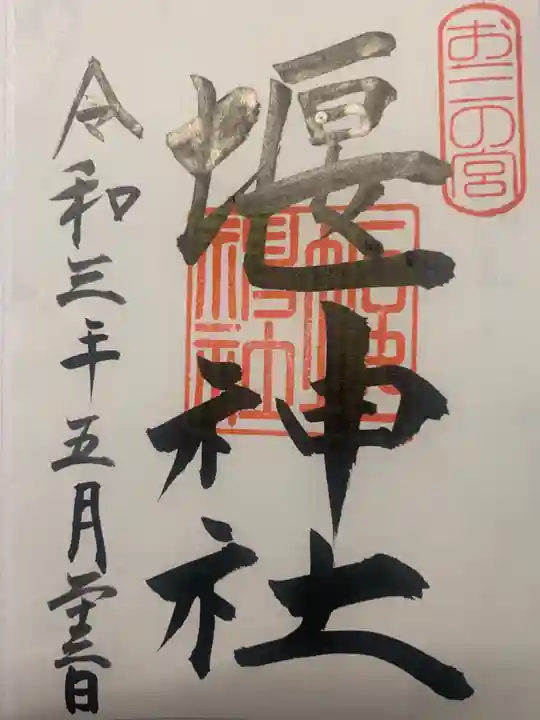 お三の宮
堰神社
令和三年五月二十三日